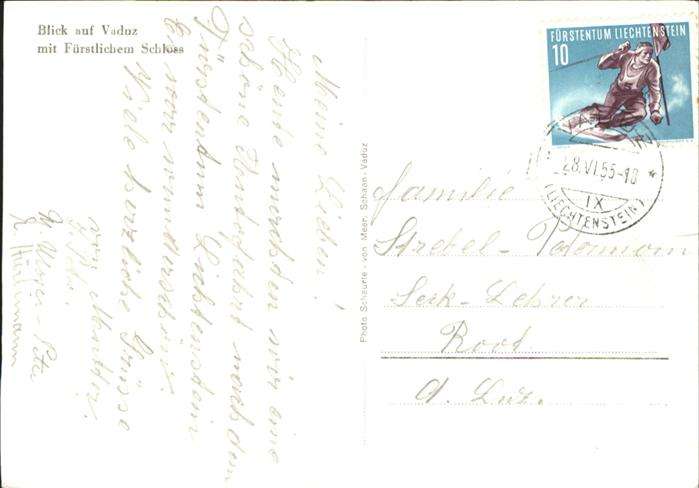 Blick auf Vaduz
mit Fürstlichem Schloss
Meine Lieben!
Heute machten wir eine
schöne Autofahrt nach dem
Fürstentum Lichtenstein
Es war wunderschön.
Viele herzliche Grüsse
von Marthy.
G. Meyer-Peter
Photo Schaurte - von Meer, Schaan-Vaduz
FÜRSTENTUM LIECHTENSTEIN
10
28.VI.55-18
IX
(LIECHTENSTEIN)
Familie
Strebel-
Sek-Lehrer
Root
a. Luz.